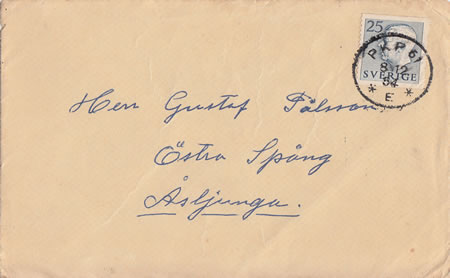 25
SVERIGE
PKP 61
8-12
54
* E *
Herr Gustaf Pålsson
Östra Spång
Åsljunga.